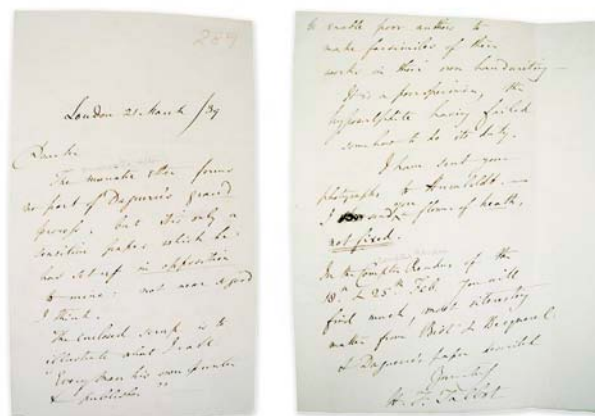 London 21 March /39
Dear Sir
The muriatic ether forms
no part of Daguerre's grand
process: but it is only a
sensitive paper which he
has set up in opposition
to mine: not near so good
I think.
The enclosed scrap is to
illustrate what I call
"Every man his own printer
& publisher"
to enable poor authors to
make facsimiles of their
works in their own handwriting —
It is a poor specimen, the
hyposulphite having failed
somehow to do its duty.
I have sent your
photographs to Humboldt. —
I send you a flower of heath,
not fixed.
In the Comptes Rendus of the
18th & 25th Feb. you will
find much, most interesting
matter from Biot & Becquerel
& Daguerre's paper
Yours truly
H. F. Talbot